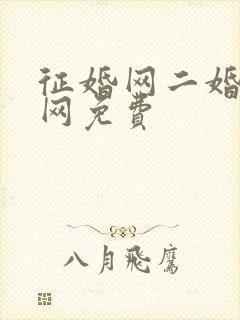 征婚网二婚
网免费
八月飞鹰